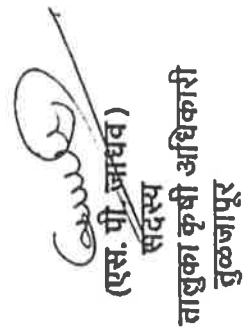 (एस. पी. जाधव)
सदस्य
तालुका कृषी अधिकारी
तुळजापूर